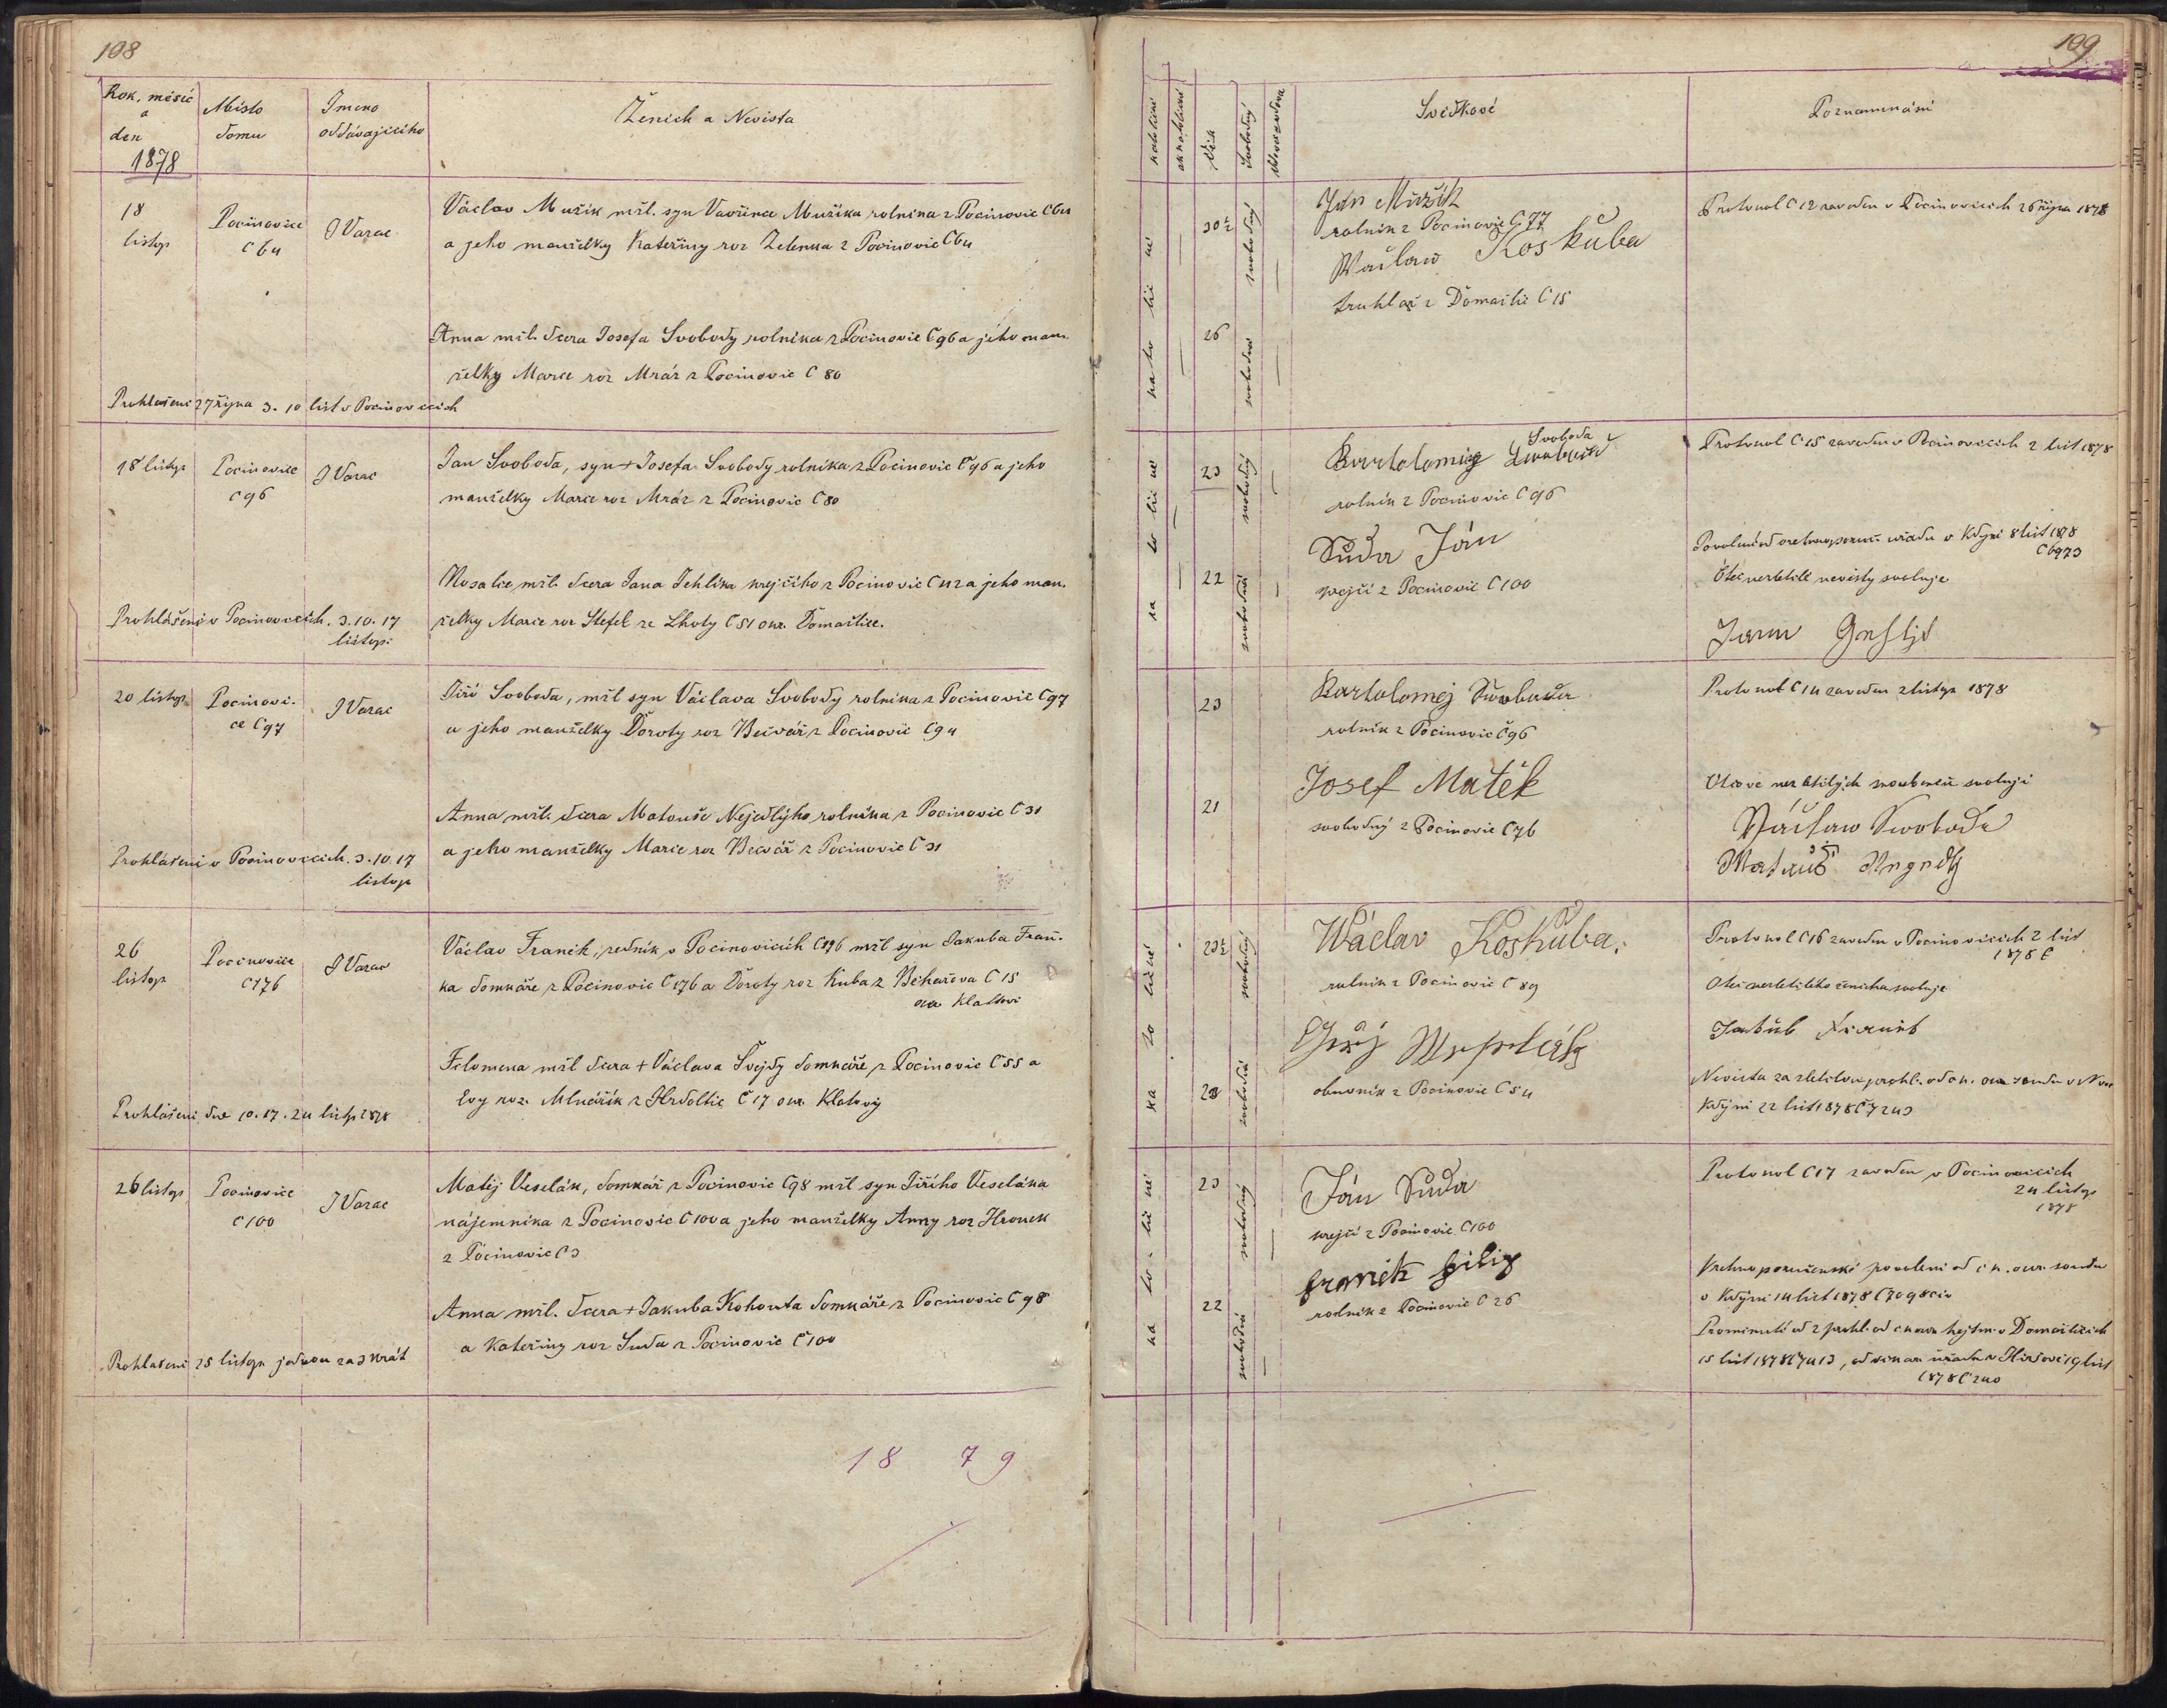 198
Rok, měsíc
a
den
1878
Místo
domu
Jmeno
oddávajícího
Ženich a Nevista
18
listop
Pocinovice
C 64
J Varac
Václav Mužík mžl. syn Vavřince Mužíka rolníka z Pocinovic C 64
a jeho manželky Kateřiny roz Zelenka z Pocinovic C 64
Anna mžl. dcera Josefa Svobody rolníka z Pocinovic C 96 a jeho man-
želky Marie roz Mráz z Pocinovic C 80
Prohlášeni 27 října 3. 10 list v Pocinovicích
18 listop
Pocinovice
C 96
J Varac
Jan Svoboda, syn + Josefa Svobody rolníka z Pocinovic C 96 a jeho
manželky Marie roz Mráz z Pocinovic C 80
Rosalie mžl. dcera Jana Jehlíka krejčího z Pocinovic C 42 a jeho man.
želky Marie roz Stefel ze Lhoty C 51 okr. Domažlice.
Prohlášeni v Pocinovicích. 3. 10. 17
listop.
20 listop
Pocinovi-
ce C 97
J Varac
Jiří Svoboda, mžl syn Václava Svobody rolníka z Pocinovic C 97
a jeho manželky Doroty roz Bečvář z Pocinovic C 94
Anna mžl. dcera Matouše Nejedlýho rolníka z Pocinovic C 31
a jeho manželky Marie roz Bečvář z Pocinovic C 31
Prohlášeni v Pocinovicích. 3. 10 17
listop
26
listop
Pocinovice
C 176
J Varac
Václav Franěk, řezník v Pocinovicích C 176 mžl syn Jakuba Fran-
ka domkáře z Pocinovic C 176 a Doroty roz Kuba z Běhařova C 15
okr Klatovi
Filomena mžl dcera + Václava Švejdy domkáře z Pocinovic C 55 a
Evy roz. Mlnářík z C 17 okr. Klatovy
Prohlášeni dne 10. 17. 24 listp 1878
26 listop
Pocinovice
C 100
J Varac
Matěj Veselák, domkář z Pocinovic C 98 mžl syn Jiřího Veseláka
nájemníka z Pocinovic C 100 a jeho manželky Anny roz Hronek
z Pocinovic C 3
Anna mžl. dcera + Jakuba Kohouta domkáře z Pocinovic C 98
a Kateřiny roz Suda z Pocinovic C 100
Prohlášeni 25 listopu jednou za 3 krát
18 79
199
katolické
akatolické
Věk
Svobodný
Vdovec vdova
Svědkové
Poznamenání
katolické
30½
svobodný
26
svobodná
Jan Mužík
rolník z Pocinovic C. 77
Wáclaw Koskuba
truhlář z Domažlic C 15
Protokol C 12 zaveden v Pocinovicích 26 října 1878
katolické
23
svobodný
22
svobodná
Svoboda
Bartolomig
rolník z Pocinovic C 96
Suda Ján
krejčí z Pocinovic C 100
Protokol C 15 zaveden v Pocinovicích 2 list 1878
Povolení od vrchnoporuč. uřadu v Kdyni 8 list 1878
C 6973
Otec nezletilé nevisty svoluje
23
21
Bartolomej Swoboda
rolník z Pocinovic C 96
Josef Matěk
svobodný z Pocinovic C 76
Protokol C 14 zaveden 2 listop 1878
Otcove nezletilých snoubenců svolují
Václaw Swoboda
katolické
23½
svobodný
svobodná
Wáclav Koskuba.
rolník z Pocinovic C 89
obuvník z Pocinovic C 54
Protokol C 16 zaveden v Pocinovicích 2 list
1878
Otec nezletilého ženicha svoluje
Nevista za zletilou prohl. od c. k. okr soudu v Nov
Kdyni 22 list 1878 C 7243
katolické
23
svobodný
22
svobodná
Ján Suda
krejčí z Pocinovic C 100
franěk filip
rolník z Pocinovic C 26
Protokol C 17 zaveden v Pocinovicích
24 listop
1878
Vrchnoporučenské povolení od c k. okr. soudu
v Kdyni 14 list 1878 C 7098 civ
Prominutí od 2 prohl. od c k okr hejtm. v Domažlicích
15 list 1878 C 7413, od vikar úřadu v Hiršově 19 list
1878 C 240